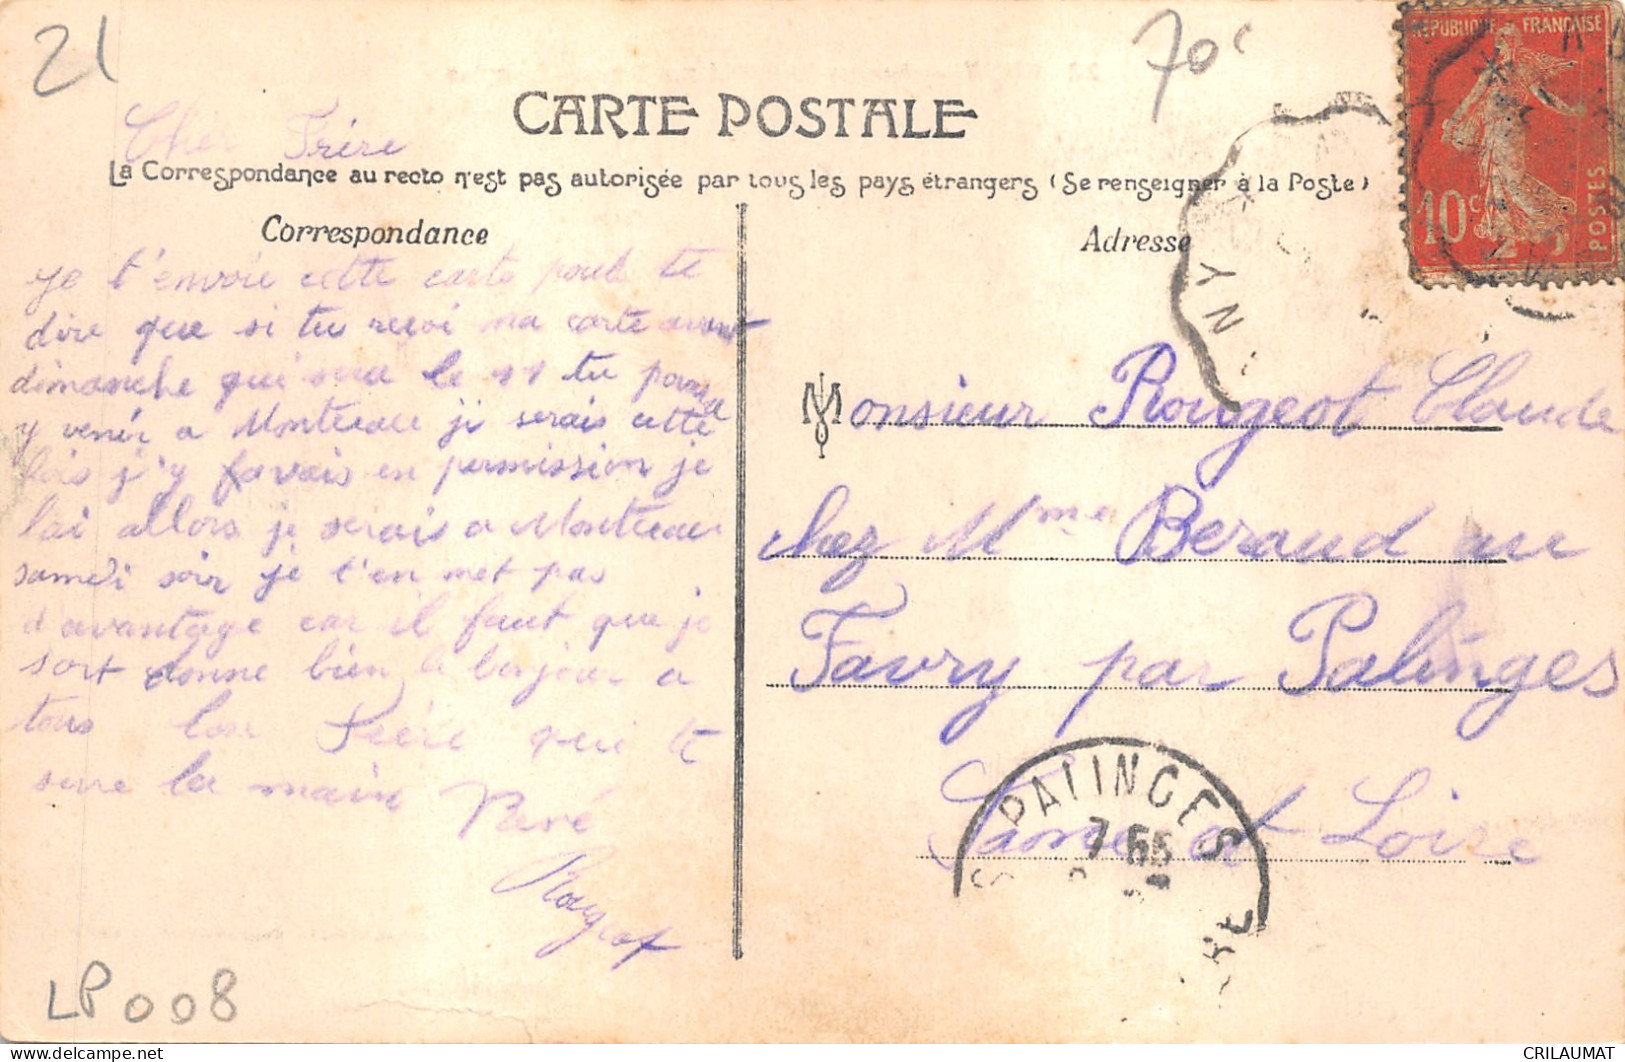 21
70c
RÉPUBLIQUE FRANÇAISE
10c
POSTES
CARTE POSTALE
La Correspondance au recto n'est pas autorisée par tous les pays étrangers (Se renseigner à la Poste)
Correspondance
Cher Frère
je t'envoie cette carte pour te
dire que si tu recoi ma carte avant
dimanche qui sera le 11 tu pourra
y venir a Montceau je serais cette
fois j'y
en permission je
l'ai allors je serais a Montceau
samedi soir je t'en met pas
d'avantage car il faut que je
sort donne bien le bonjour a
tous ton Frère qui te
serre la main René
Rougeot
Adresse
Monsieur Rougeot Claude
chez Mme Beraud au
Favry par Palinges
Saone et Loire
PALINGES
7 55
NY
LP008
CRILAUMAT